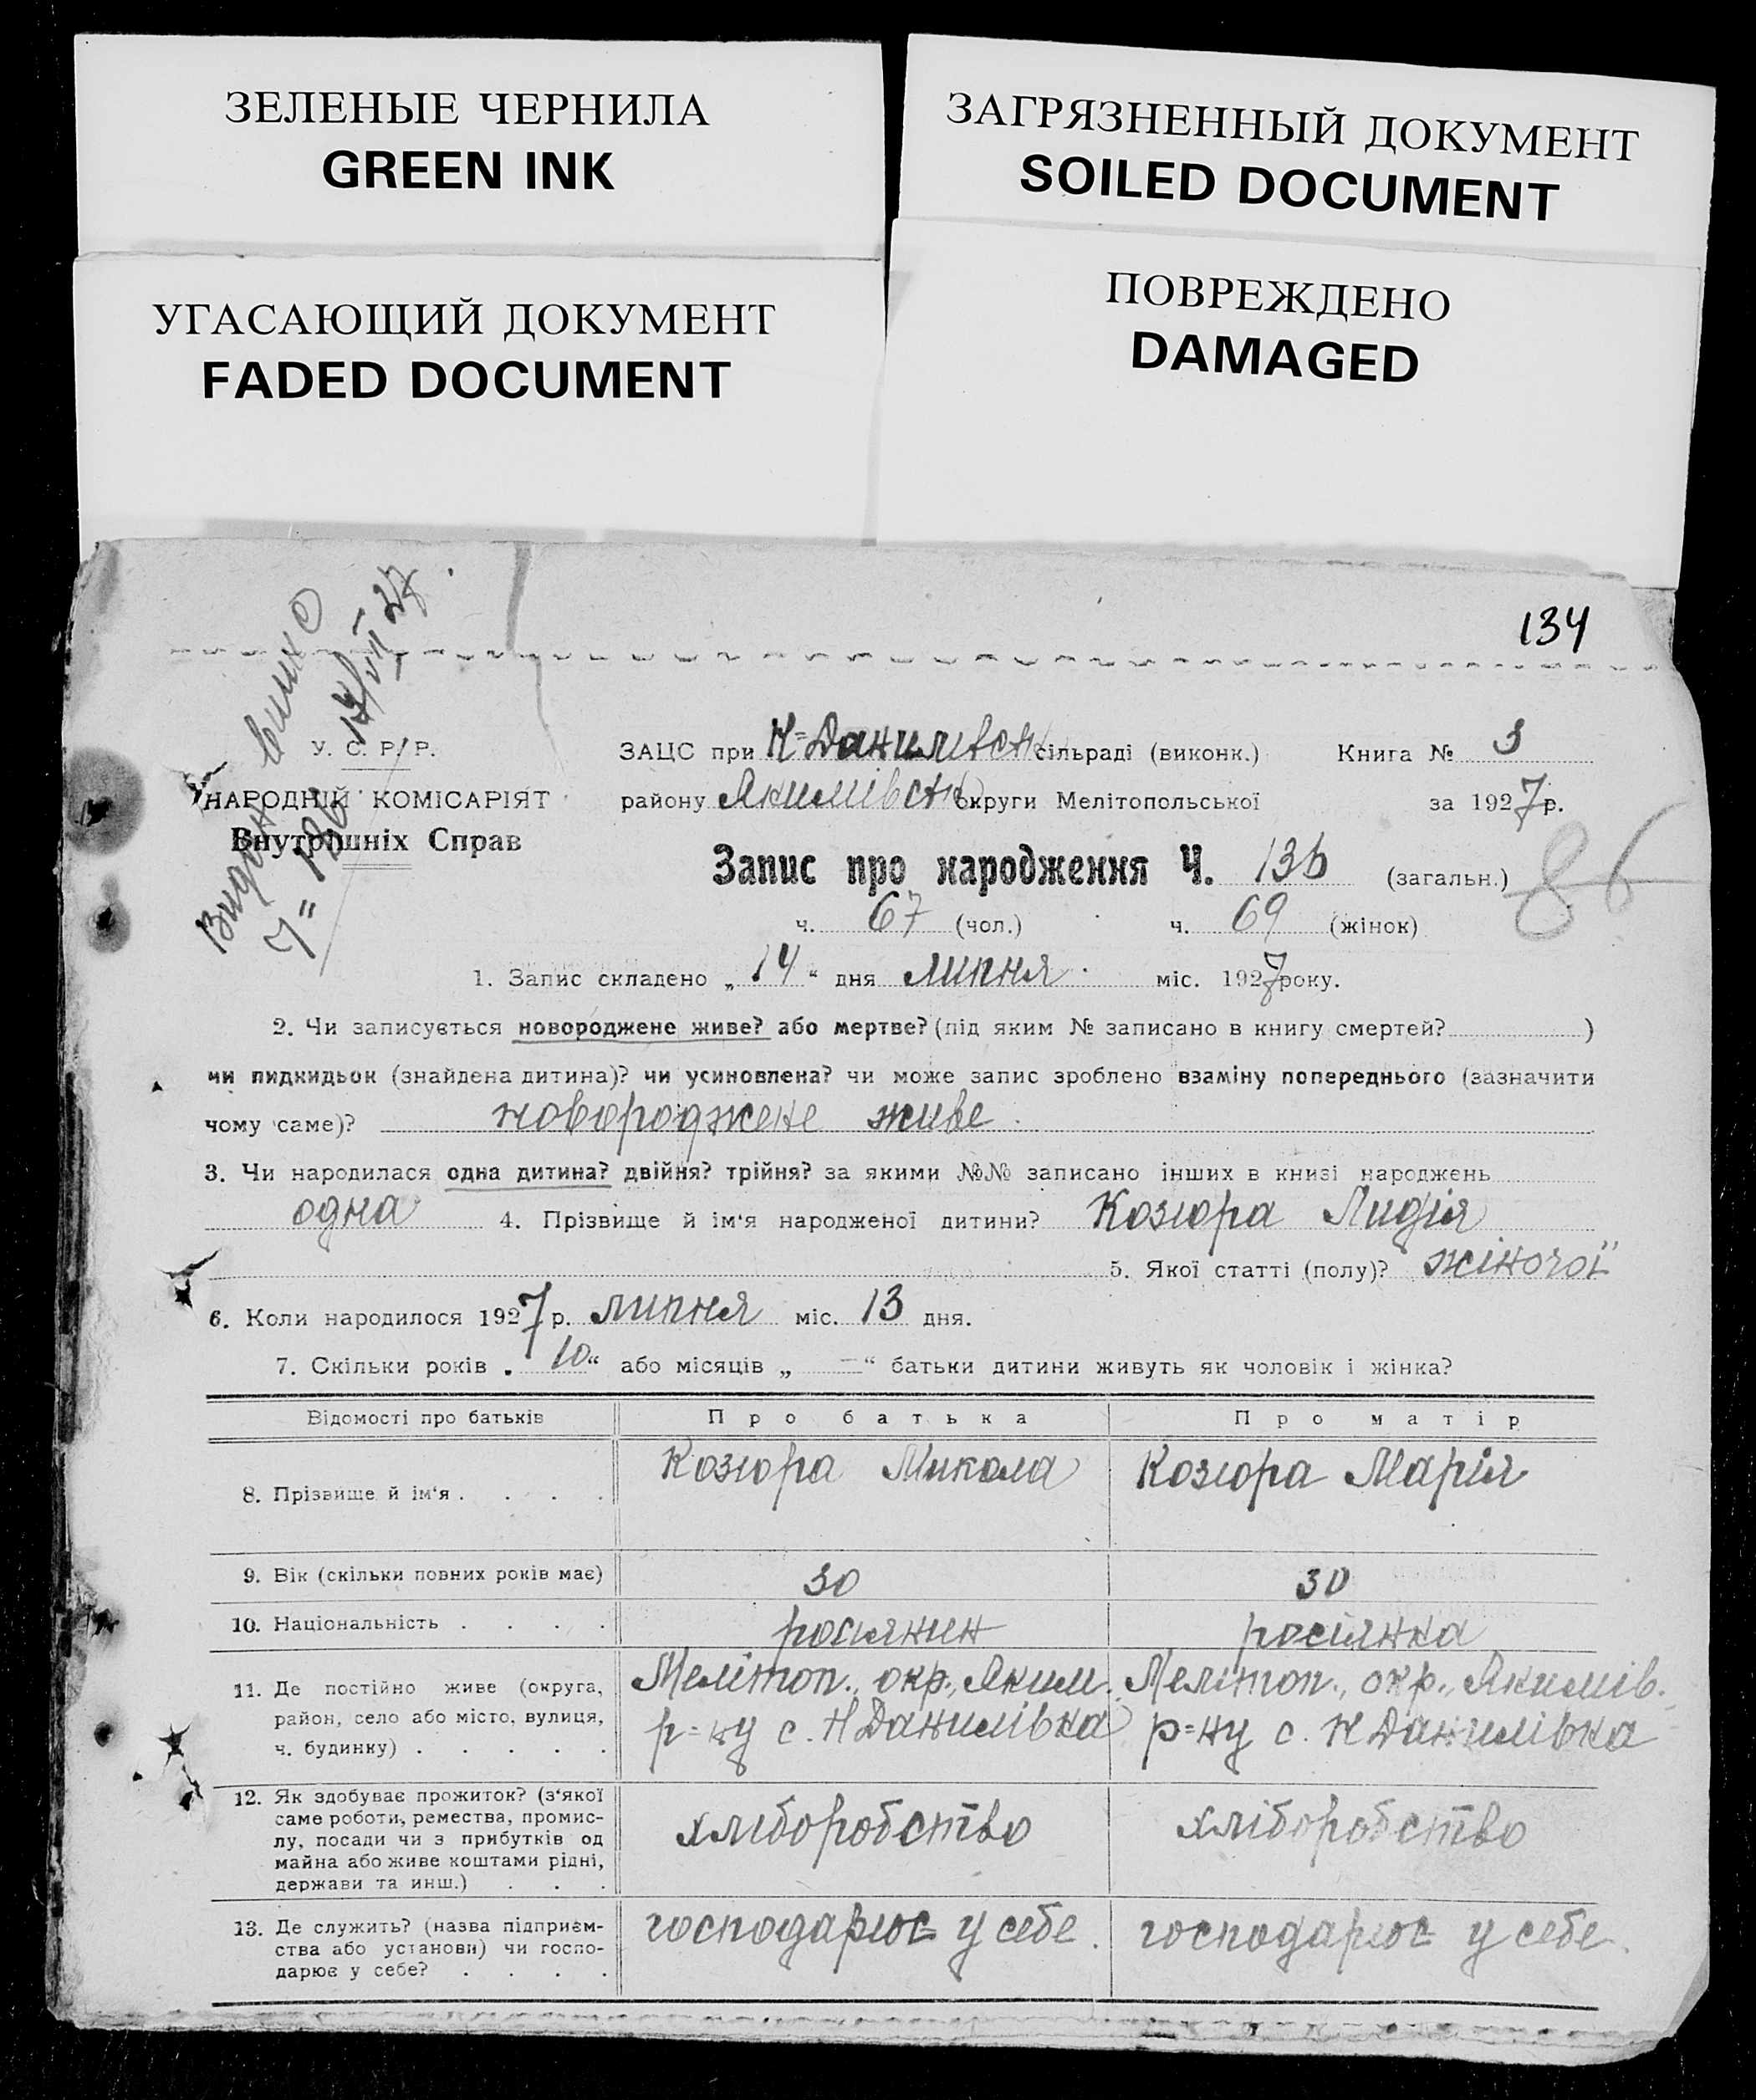 ЗЕЛЕНЫЕ ЧЕРНИЛА
GREEN INK
ЗАГРЯЗНЕННЫЙ ДОКУМЕНТ
SOILED DOCUMENT
УГАСАЮЩИЙ ДОКУМЕНТ
FADED DOCUMENT
ПОВРЕЖДЕНО
DAMAGED
134
У. С. Р. Р.
НАРОДНІЙ КОМІСАРІЯТ
Внутрішніх Справ
ЗАЦС при Н=Данилівськ сільраді (виконк.) Книга № 3
району Якимівськ округи Мелітопольської за 1927 р.
Запис про народження Ч. 136 (загальн.)
86
ч. 67 (чол.) ч. 69 (жінок)
1. Запис складено „14“ дня липня міс. 1927 року.
2. Чи записується новороджене живе? або мертве? (під яким № записано в книгу смертей? )
чи пидкидьок (знайдена дитина)? чи усиновлена? чи може запис зроблено взаміну попереднього (зазначити
чому саме)? новороджене живе
3. Чи народилася одна дитина? двійня? трійня? за якими №№ записано інших в книзі народжень
одна 4. Прізвище й ім‘я народженої дитини? Козюра Лидія
5. Якої статті (полу)? жіночої
6. Коли народилося 1927 р. липня міс. 13 дня.
7. Скільки років „10“ або місяців „—“ батьки дитини живуть як чоловік і жінка?
Відомості про батьків Про батька Про матір
8. Прізвище й ім‘я . . . . Козюра Микола Козюра Марія
9. Вік (скільки повних років має) 30 30
10. Національність . . . . росіянин росіянка
11. Де постійно живе (округа,
район, село або місто, вулиця,
ч. будинку) . . . . .
Мелітоп., окр., Яким.
р=ну с. Н Данилівка
Мелітоп., окр., Якимів.
р=ну с. Н Данилівка
12. Як здобуває прожиток? (з‘якої
саме роботи, ремества, промис-
лу, посади чи з прибутків од
майна або живе коштами рідні,
держави та инш.) . . .
хліборобство
хліборобство
13. Де служить? (назва підприєм-
ства або установи) чи госпо-
дарює у себе? . . . .
господарює у себе.
господарює у себе.